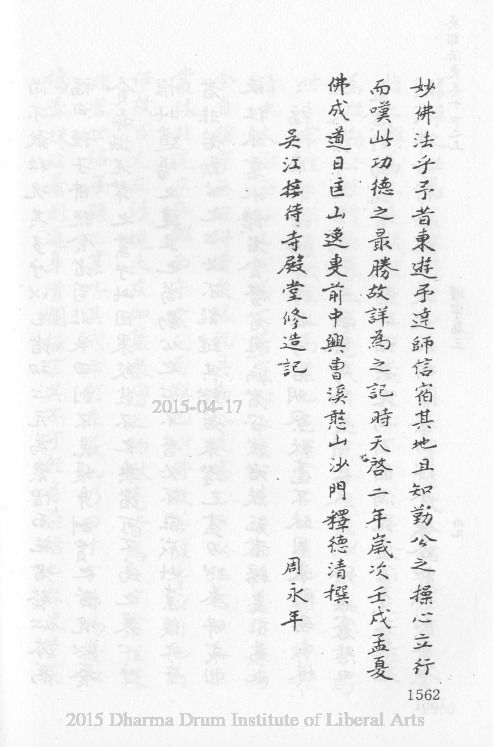 妙佛法乎予昔東遊予達師信宿其地且知勤公之操心立行
而嘆此功德之最勝故詳為之記時天啓二年歲次壬戌孟夏
佛成道日匡山逸叟前中興曹溪憨山沙門釋德清撰
吳江接待寺殿堂修造記
周永年
2015-04-17
1562
2015 Dharma Drum Institute of Liberal Arts